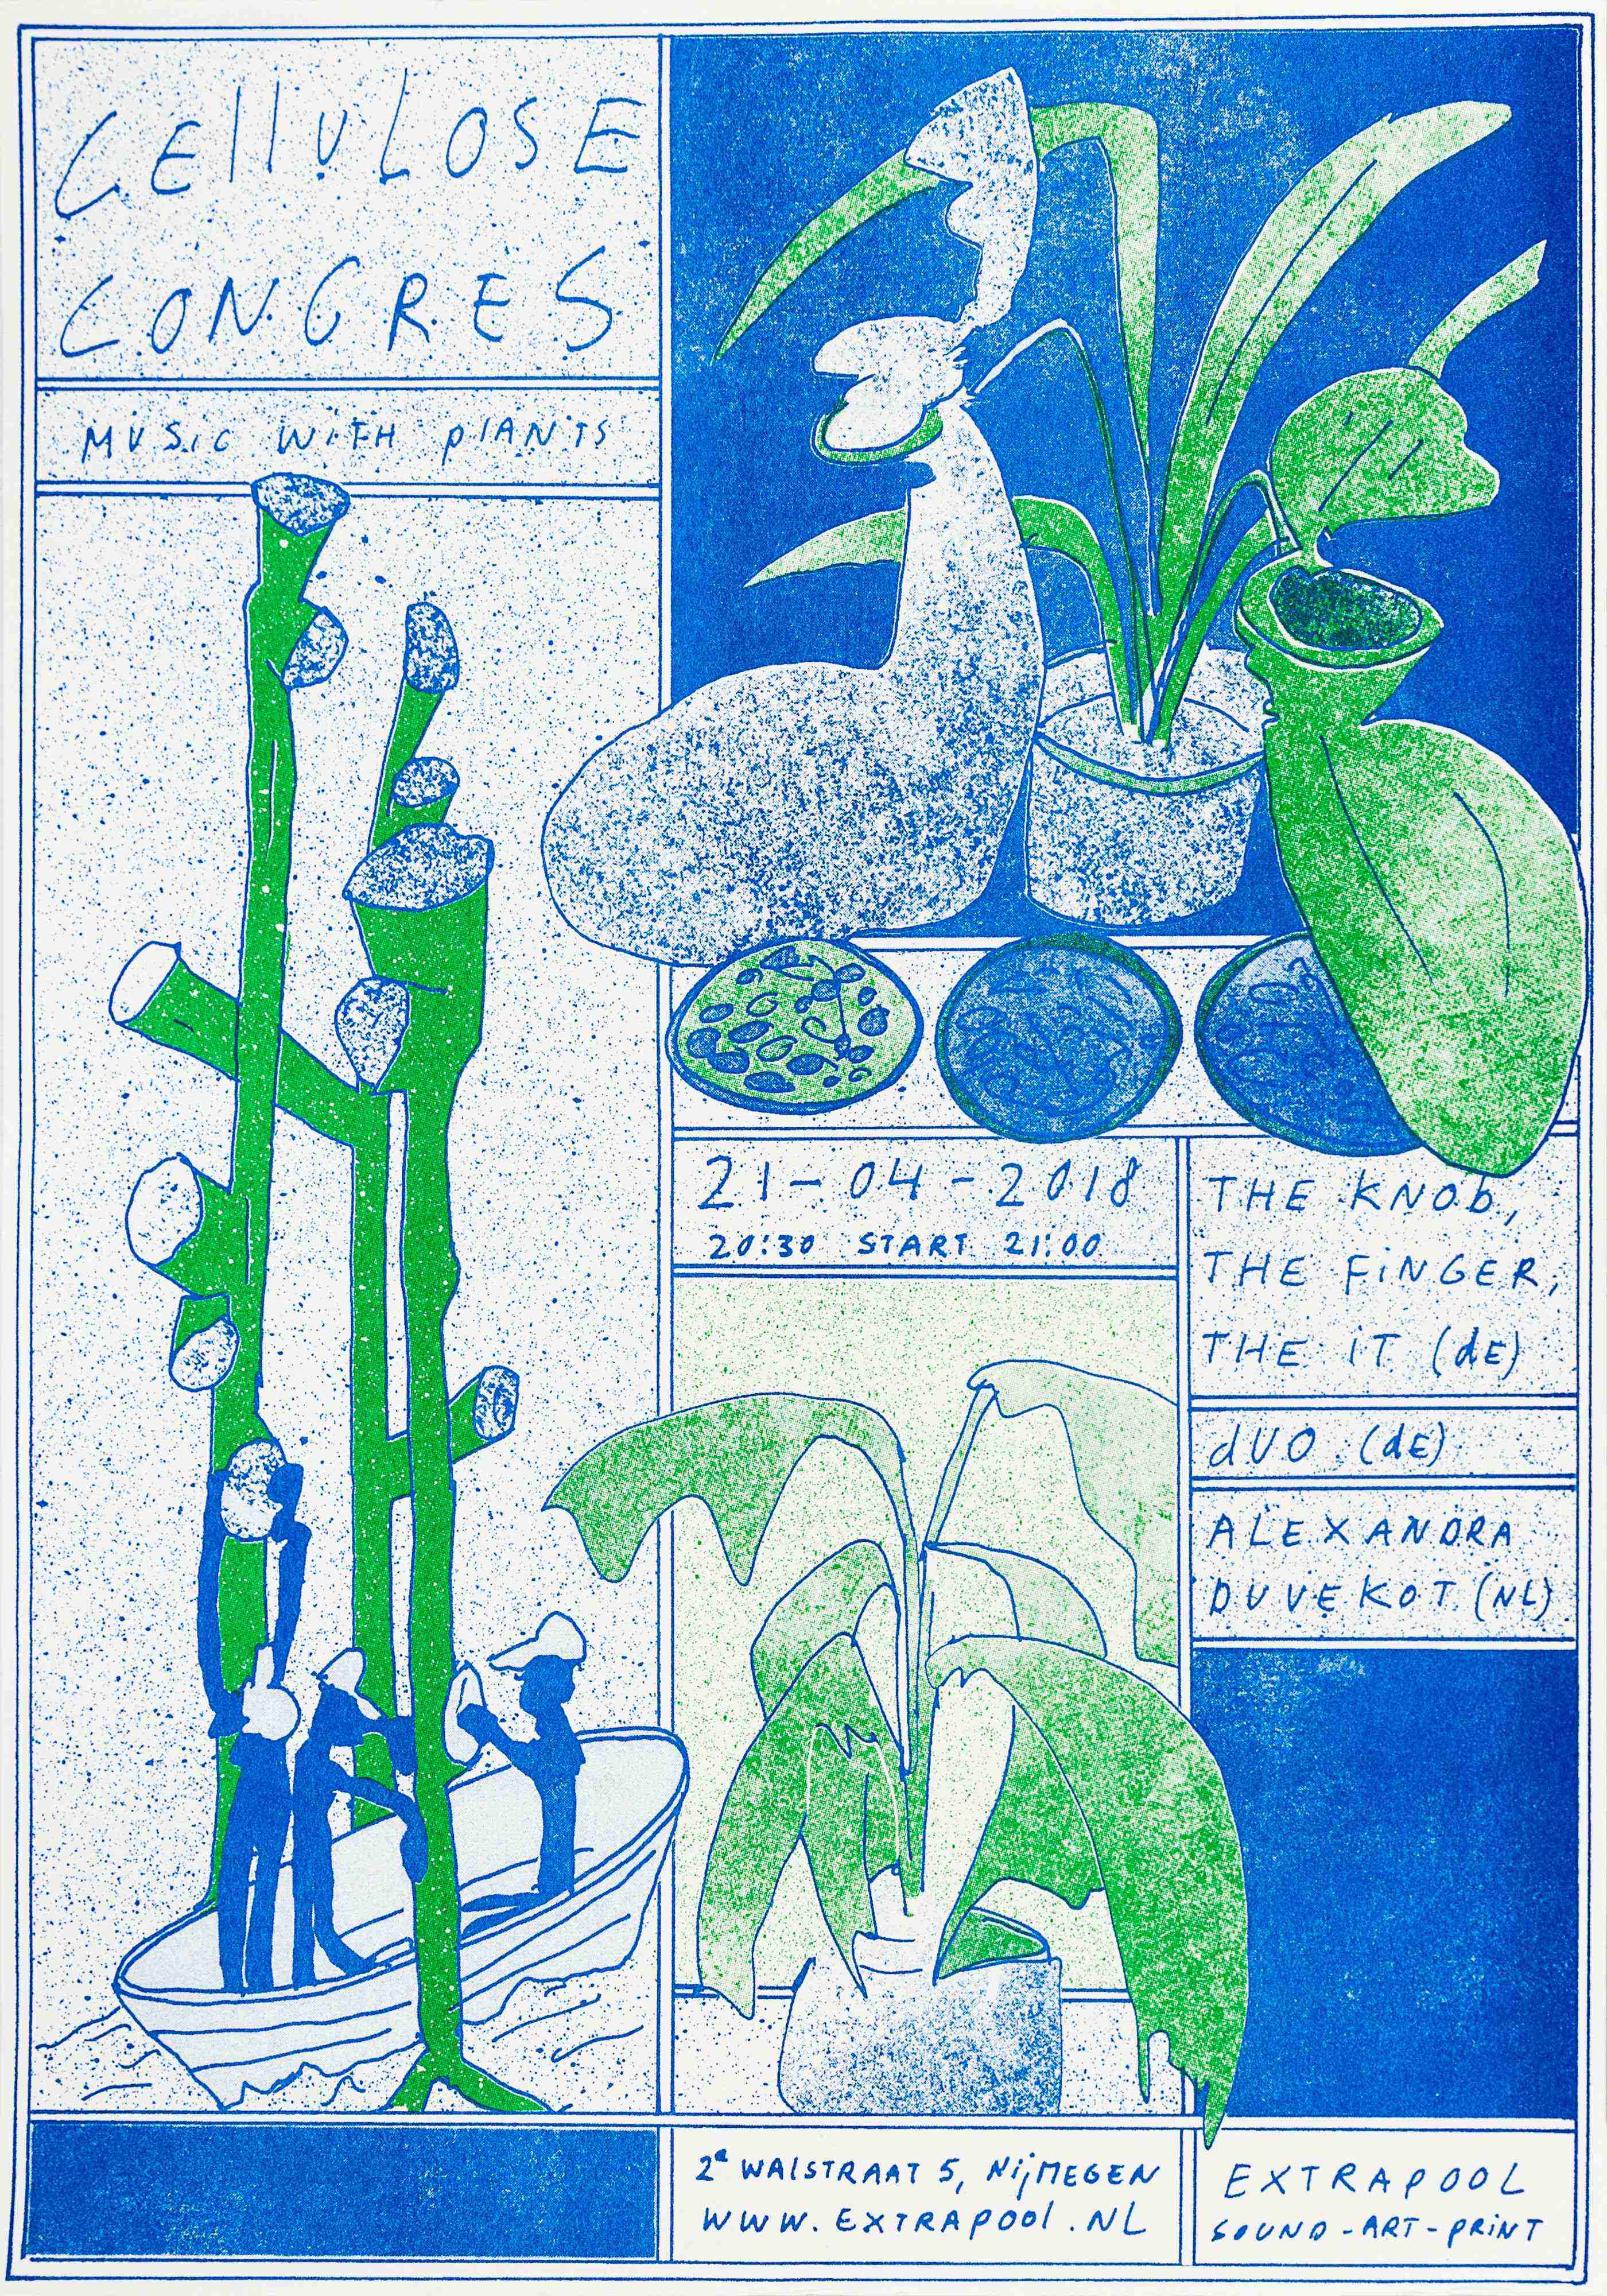 CEllULOSE
CONGRES
MUSiC WiTH plANTS
21-04-2018
20:30 START 21:00
THE KNOb,
THE FiNGER,
THE iT (dE)
dUO (dE)
ALEXANDRA
DUVEKOT (NL)
2e WAlSTRAAT 5, NijMEGEN
WWW.EXTRApOOl.NL
EXTRApOOL
SOUND-ART-pRiNT